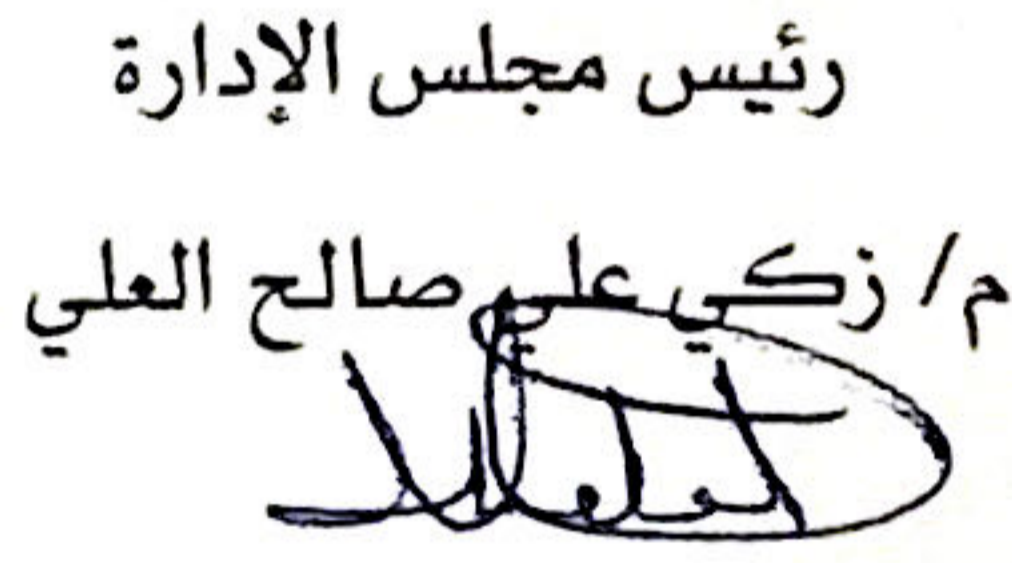 رئيس مجلس الإدارة
م/ زكي علي صالح العلي